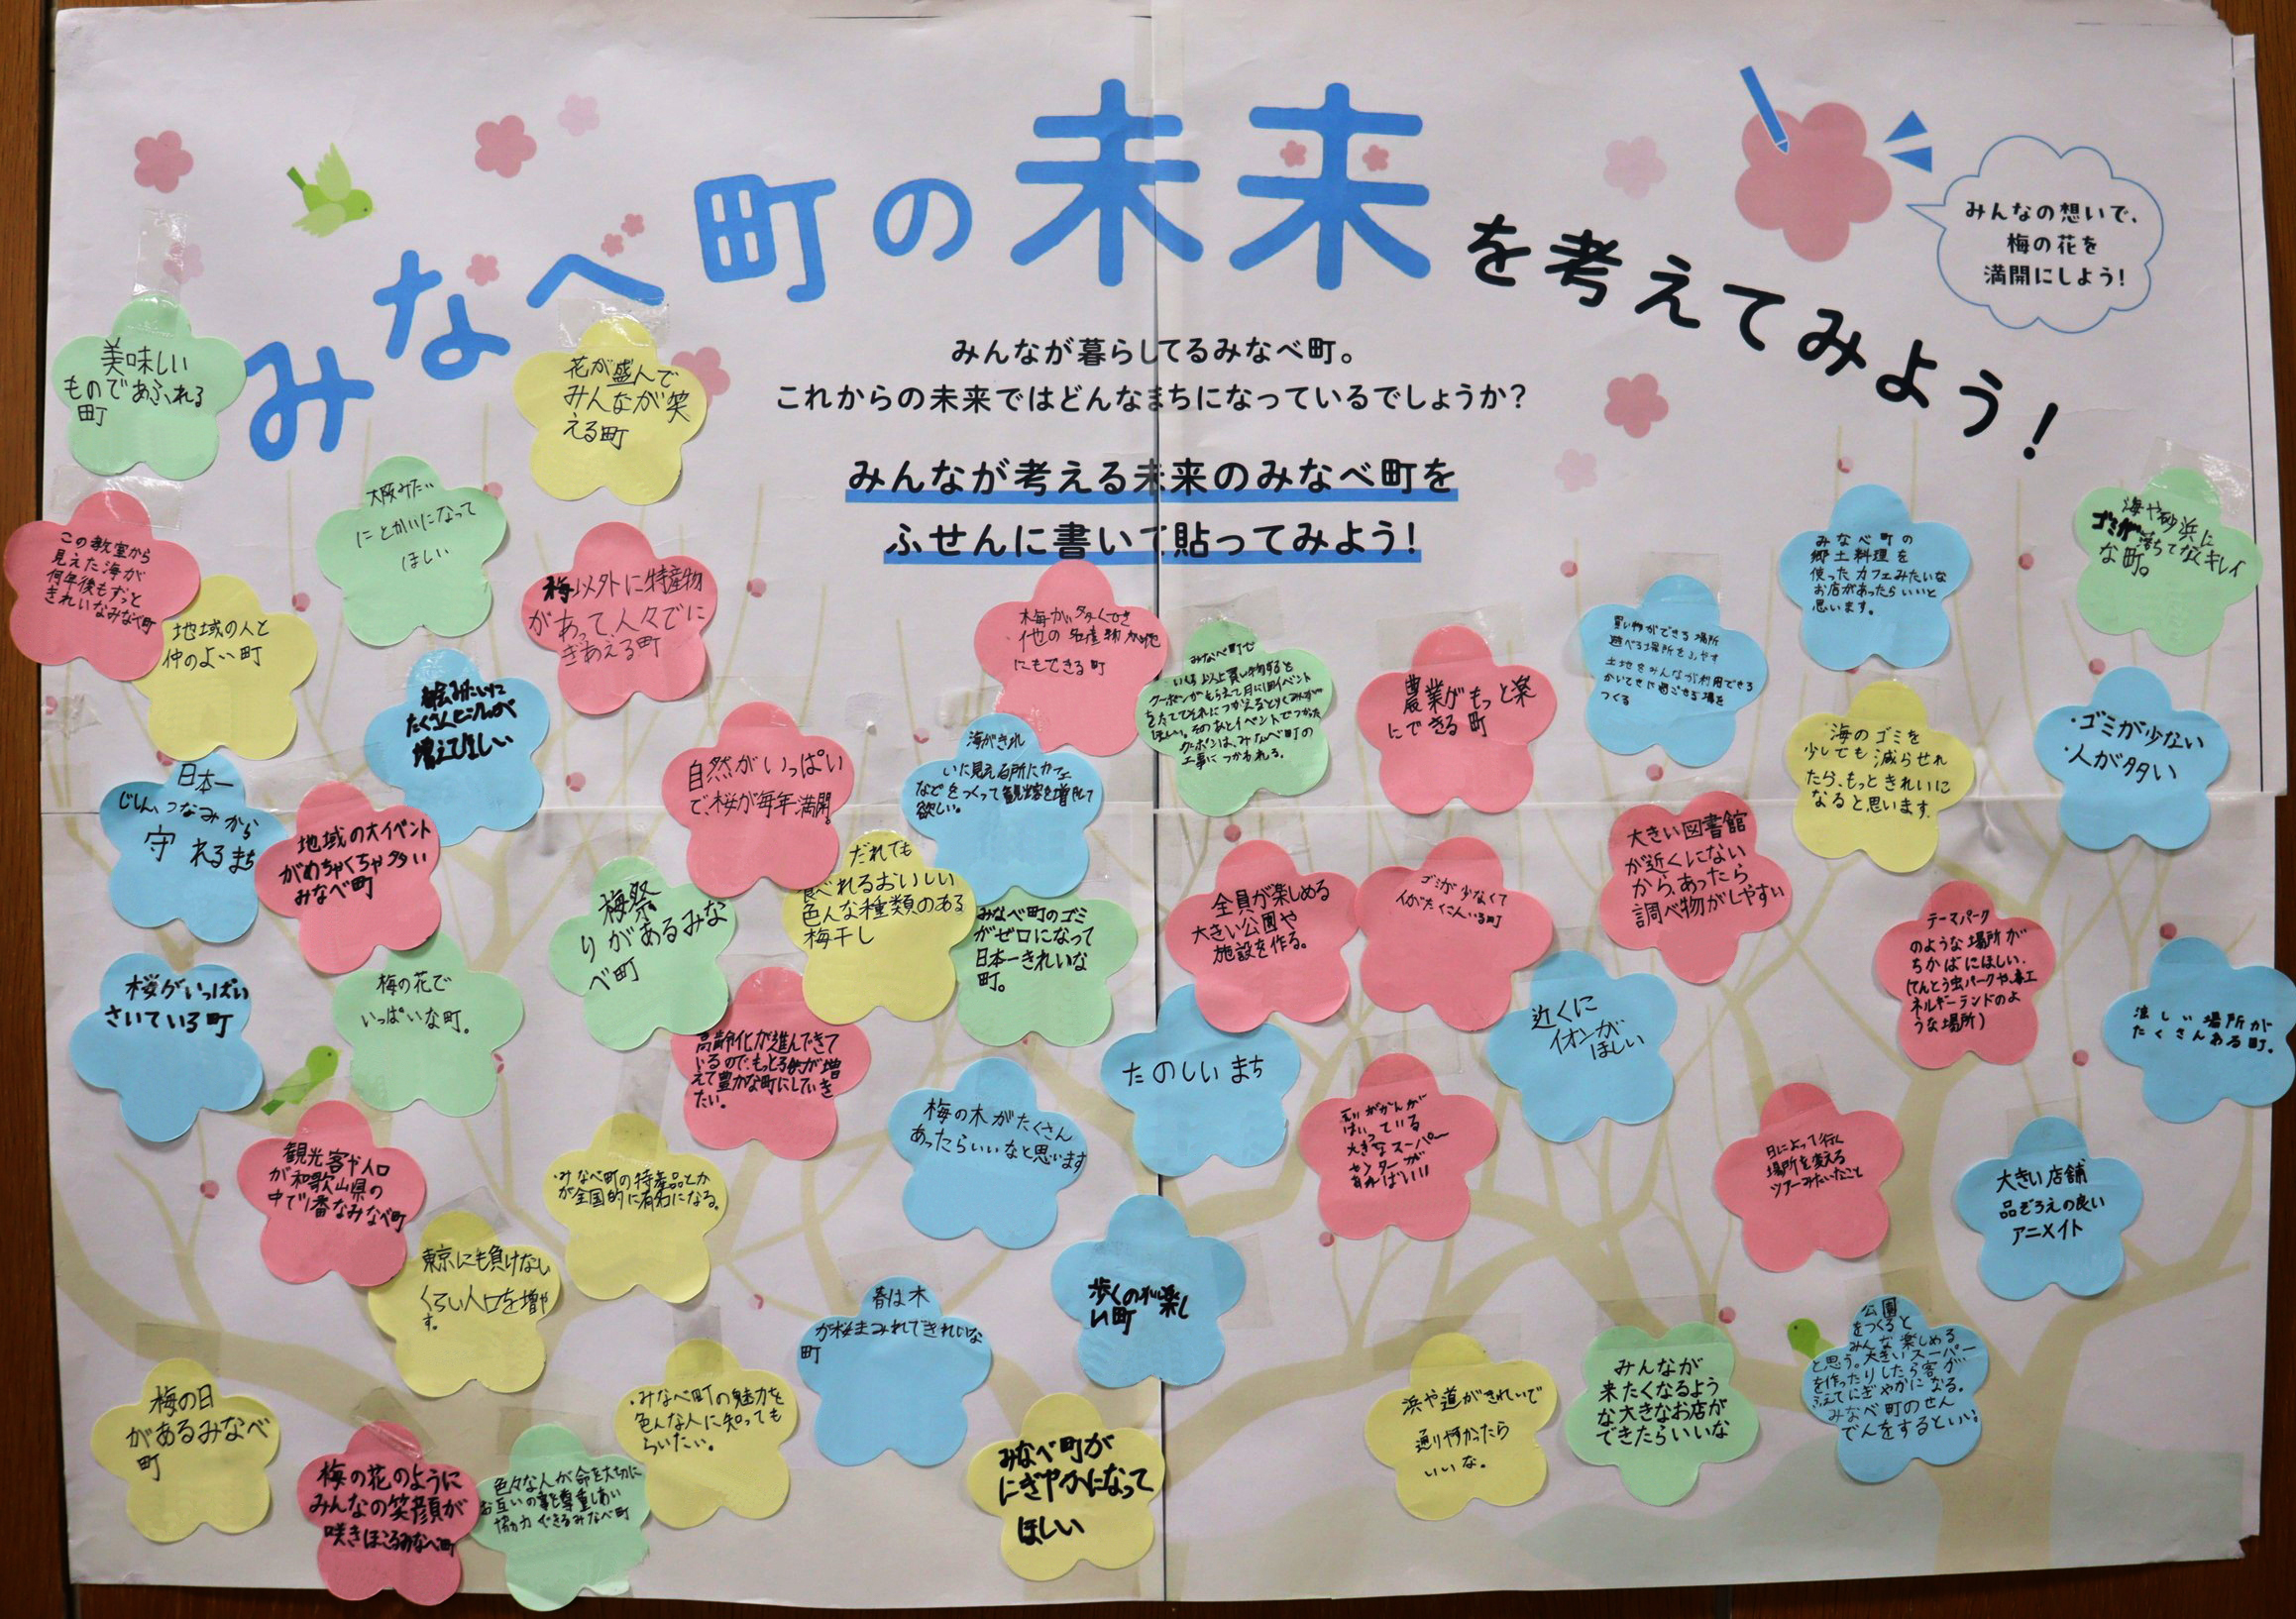 みなべ町の未来を考えてみよう!
みんなの想いで、
梅の花を
満開にしよう!
みんなが暮らしてるみなべ町。
これからの未来ではどんなまちになっているでしょうか?
みんなが考える未来のみなべ町を
ふせんに書いて貼ってみよう!
美味しい
ものであふれる
町
花が盛んで
みんなが笑
える町
大阪みたい
にとかいになって
ほしい
この教室から
見えた海が
何年後もずっと
きれいなみなべ町
地域の人と
仲のよい町
梅以外に特産物
があって、人々でに
ぎあえる町
都会みたいに
たくさんビルが
増えてほしい
日本一
じしん、つなみから
守れるまち
地域の大イベント
がめちゃくちゃ多い
みなべ町
自然がいっぱい
で、桜が毎年満開。
梅が多くでき
他の名産物が他
にもできる町
みなべ町で
いくら以上買い物すると
クーポンがもらえて月に1回イベント
をたててそれにつかえる
ほしい。そのあとイベントでつかった
クーポンは、みなべ町の
工事につかわれる。
農業がもっと楽
にできる町
買い物ができる場所
遊べる場所をふやす
土地をみんなが利用できる
かいてきに過ごせる場を
つくる
みなべ町の
郷土料理を
使ったカフェみたいな
お店があったらいいと
思います。
海や砂浜に
ゴミが落ちてなくキレイ
な町。
海のゴミを
少しでも減らせれ
たら、もっときれいに
なると思います。
・ゴミが少ない
・人が多い
海がきれ
いに見える所にカフェ
などをつくって観光客を増やして
欲しい。
だれでも
食べれるおいしい
色んな種類のある
梅干し
梅祭
りがあるみな
べ町
みなべ町のゴミ
がゼロになって
日本一きれいな
町。
全員が楽しめる
大きい公園や
施設を作る。
ゴミが少なくて
人がたくさんいる町
大きい図書館
が近くにない
から、あったら
調べ物がしやすい
テーマパーク
のような場所が
ちかばにほしい。
(てんとう虫パークや、
ネルギーランドのよ
うな場所)
涼しい場所が
たくさんある町。
桜がいっぱい
さいている町
梅の花で
いっぱいな町。
高齢化が進んできて
いるので、もっと
えて豊かな町にしていき
たい。
たのしいまち
近くに
イオンが
ほしい
梅の木がたくさん
あったらいいなと思います
はいっている
大きなスーパー
センターが
あればいい
日によって行く
場所を変える
ツアーみたいなこと
大きい店舗
品ぞろえの良い
アニメイト
観光客や人口
が和歌山県の
中で1番なみなべ町
・みなべ町の特産品とか
が全国的に有名になる。
東京にも負けない
くらい人口を増や
す。
歩くのが楽し
い町
春は木
が桜まみれできれいな
町
梅の日
があるみなべ
町
梅の花のように
みんなの笑顔が
咲きほこるみなべ町
色々な人が命を大切に
お互いの事を尊重しあい
協力できるみなべ町
・みなべ町の魅力を
色んな人に知っても
らいたい。
みなべ町が
にぎやかになって
ほしい
浜や道がきれいで
通りやすかったら
いいな。
みんなが
来たくなるよう
な大きなお店が
できたらいいな
公園
をつくると
みんな楽しめる
と思う。大きいスーパー
を作ったりしたら客が
ふえてにぎやかになる。
みなべ町のせん
でんをするといい。